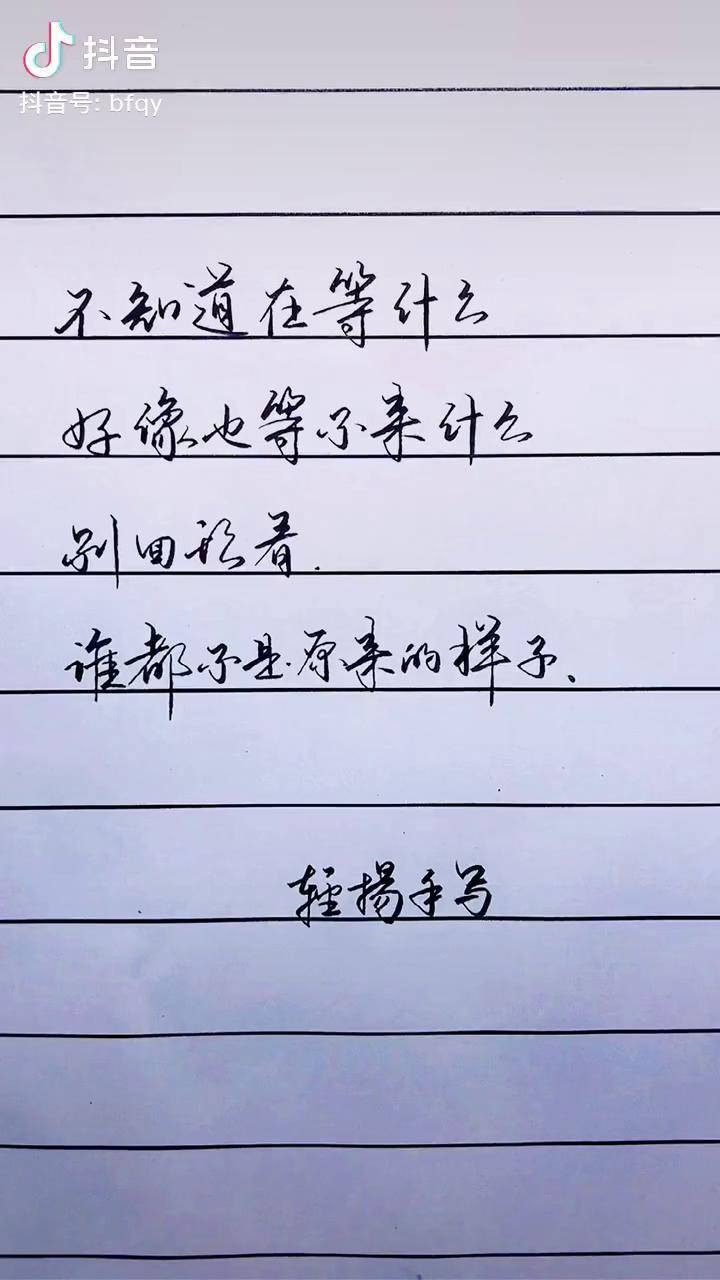 抖音
抖音号: bfqy
不知道在等什么
好像也等不来什么
别回头看.
谁都不是原来的样子、
轻扬手写